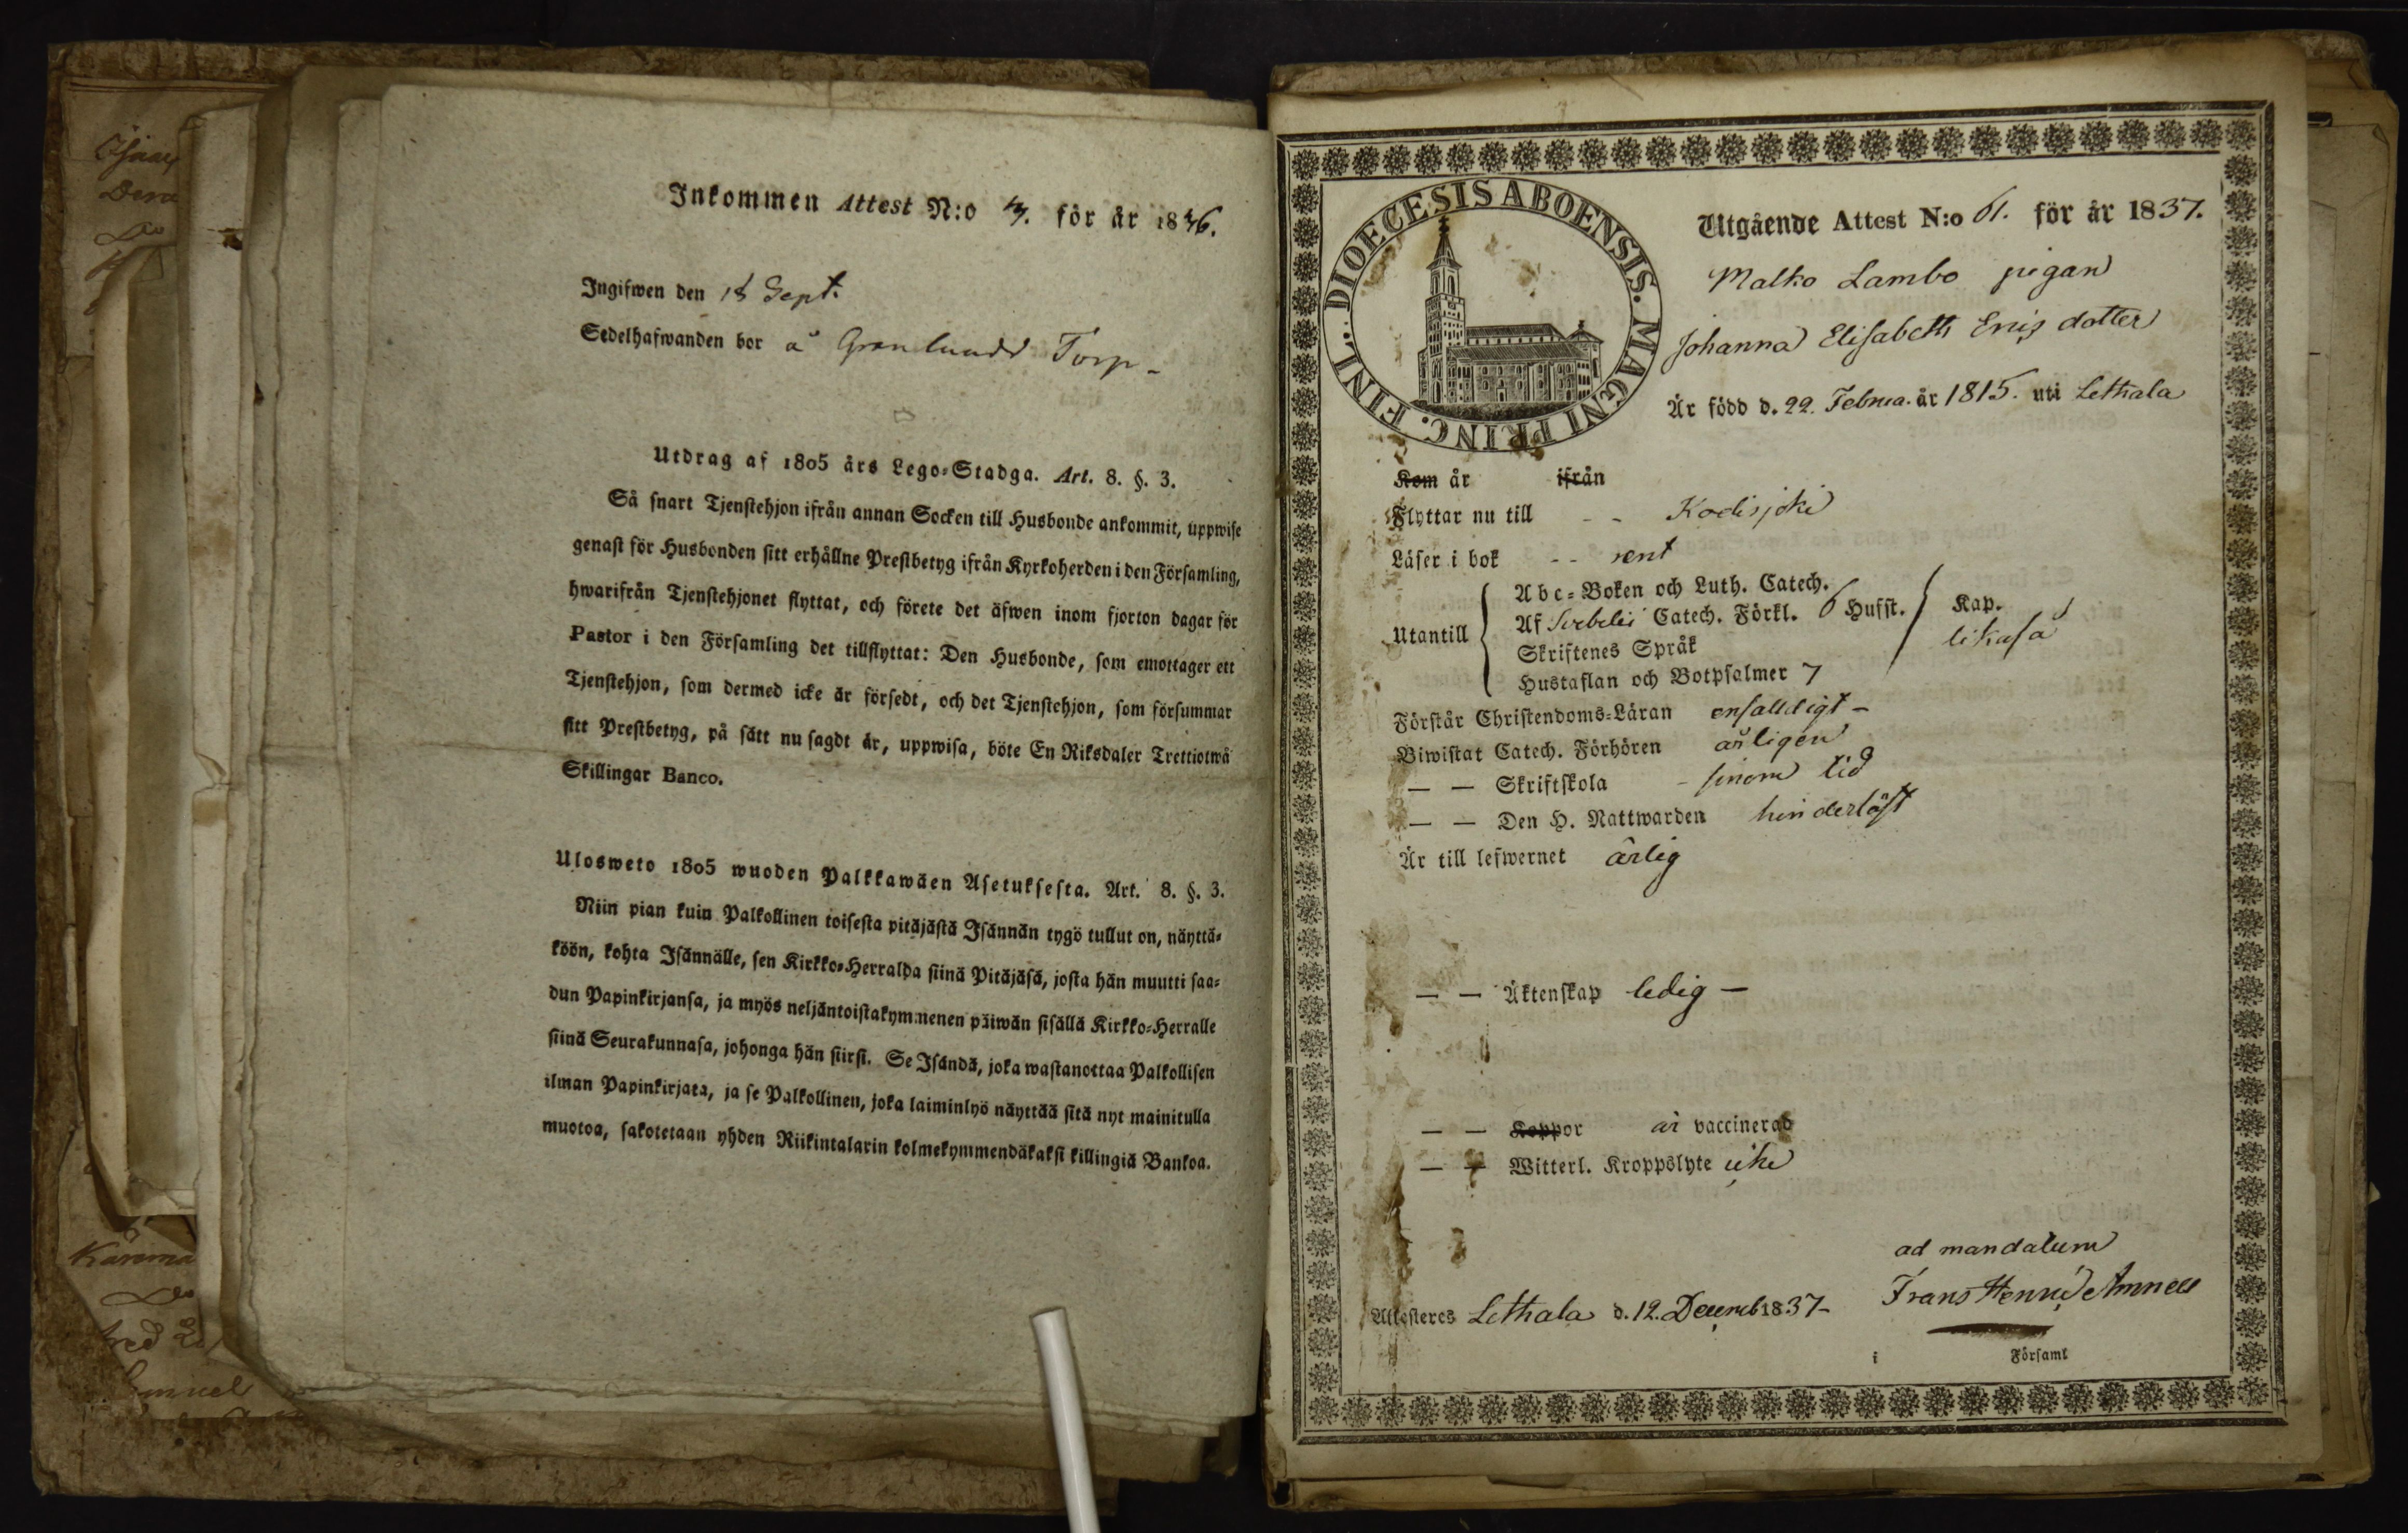 Inkommen Attest N:o för år 1836.
Ingifwen den 18 Sept.
Sedelhafwanden bor å Grönlunds Torp -
Utdrag af 1805 års Lego-Stadga. Art. 8. §. 3.
Så snart Tjenstehjon ifrån annan Socken till Husbonde ankommit, uppwise
genast för Husbonden sitt erhållne Prestbetyg ifrån Kyrkoherden i den Församling,
hwarifrån Tjenstehjonet flyttat, och förete det äfwen inom fjorton dagar för
Pastor i den Församling det tillflyttat: Den Husbonde, som emottager ett
Tjenstehjon, som dermed icke är försedt, och det Tjenstehjon, som försummar
sitt Prestbetyg, på sätt nu sagdt är, uppwisa, böte En Riksdaler Trettiotwå
Skillingar Banco.
Ulosweto 1805 wuoden Palkkawäen Asetuksesta. Art. 8. §. 3.
Niin pian kuin Palkollinen toisesta pitäjästä Isännän tygö tullut on, näyttä-
köön, kohta Isännälle, sen Kirkko-Herralda siinä Pitäjäsä, josta hän muutti saa-
dun Papinkirjansa, ja myös neljäntoistakymmenen päiwän sisällä Kirkko-Herralle
siinä Seurakunnasa, johonga hän siirsi. Se Isändä, joka wastanottaa Palkollisen
ilman Papinkirjata, ja se Palkollinen, joka laiminlyö näyttää sitä nyt mainitulla
muotoa, sakotetaan yhden Riikintalarin kolmekymmendäkaksi killingiä Bankoa.
DIOECESIS ABOENSIS. MAGNI PRINC. FINL.
Utgående Attest N:o 61. för år 1837.
Malko Lambo pigan
Johanna Elisabeth Ericsdotter
Är född d. 22. Februa. år 1815. uti Lethala
Kom år ifrån
Flyttar nu till - - Kodisjoki
Läser i bok - - rent
Utantill
Abc-Boken och Luth. Catech.
Af Svebelii Catech. Förkl. 6 Hufst.
Skriftenes Språk
Hustaflan och Botpsalmer 7
Kap.
likaså
Förstår Christendoms-Läran enfalldigt -
Biwistat Catech. Förhören årligen
— — Skriftskola - sinom tid
— — Den H. Nattwarden hinderlöst
Är till lefwernet ärlig
— — Äktenskap ledig —
— — Koppor är vaccinerad
— — Witterl. Kroppslyte icke
ad mandatum
Attesteres Lethala d. 12. Decemb 1837-
Frans Henric Amnell
i Församl